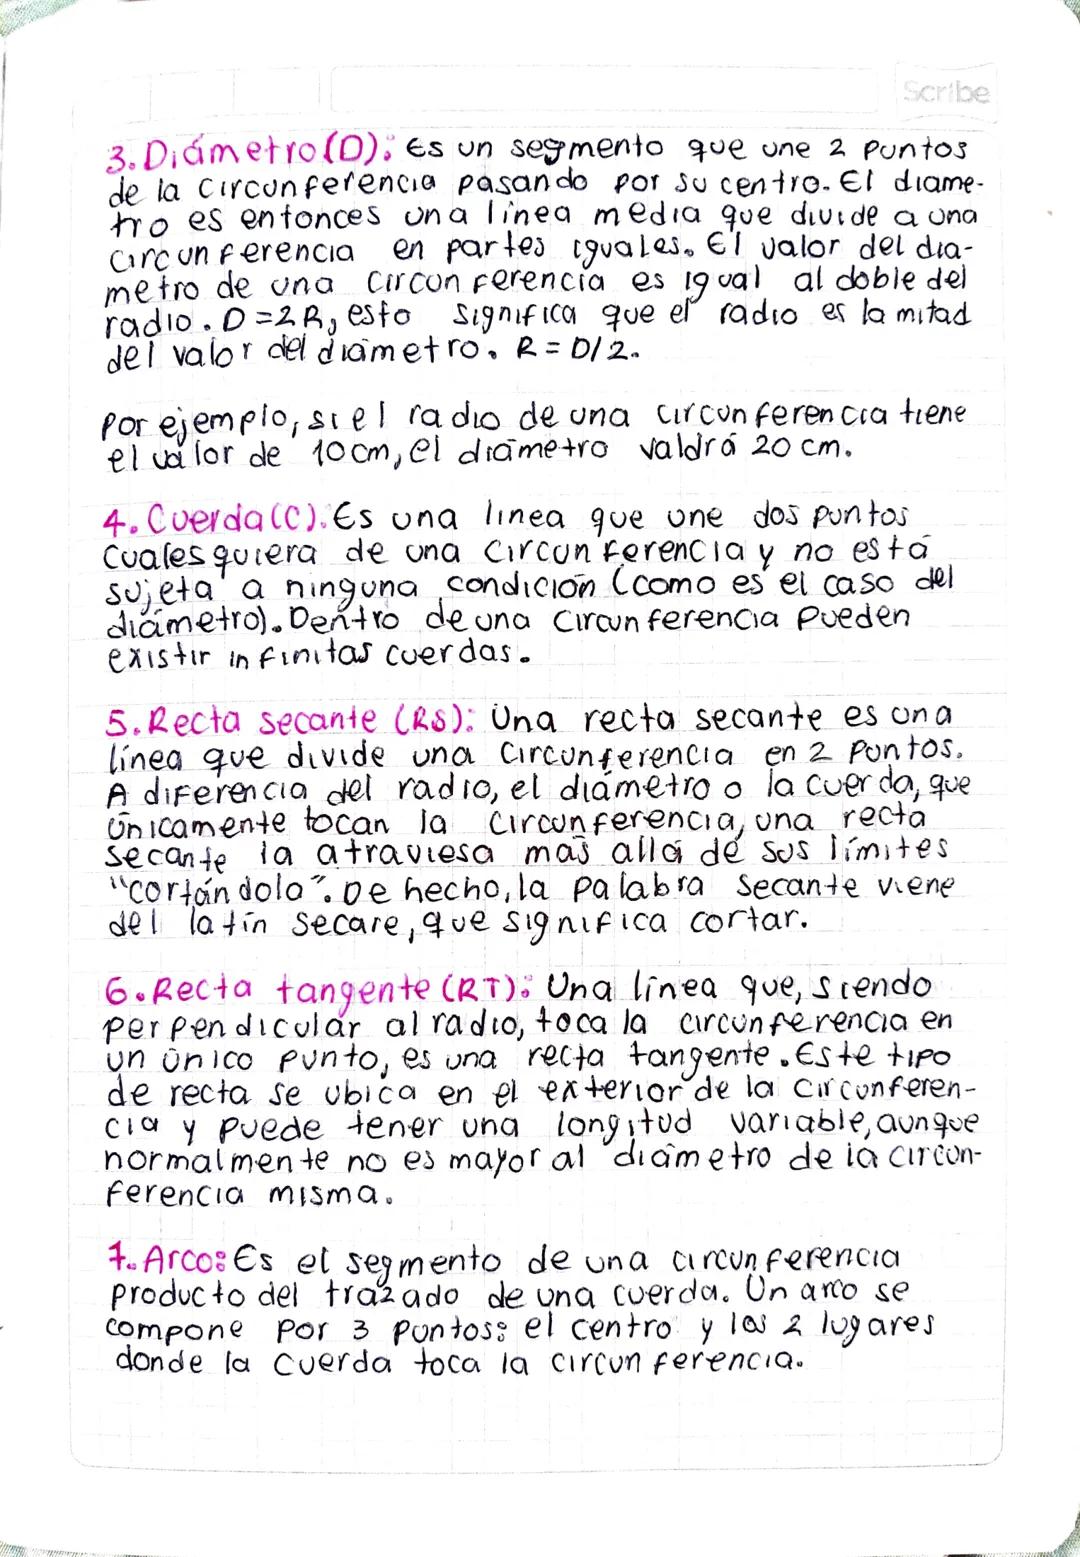 Scribe
3. Diámetro (D): Es un segmento que une 2 puntos
de la circunferencia pasando por su centro. El diame-
tro es entonces una línea media que divide a una
circunferencia en partes iguales. El valor del dia-
metro de una circunferencia es igual al doble del
radio. D=2R, esto significa que el radio es la mitad
del valor del diámetro. R = D/2.
Por ejemplo, si el radio de una circunferencia tiene
el valor de 10cm, el diámetro valdrá 20 cm.
4. Cuerda (C): Es una linea que une dos puntos
cualesquiera de una circunferencia y no está
sujeta a ninguna condición (como es el caso del
diámetro). Dentro de una circunferencia pueden
existir infinitas cuerdas.
5. Recta secante (RS): Una recta secante es una
línea que divide una circunferencia en 2 puntos.
A diferencia del radio, el diámetro o la cuerda, que
únicamente tocan la circunferencia, una recta
secante la atraviesa más allá de sus límites
"cortándola". De hecho, la palabra secante viene
del latín secare, que significa cortar.
6. Recta tangente (RT): Una línea que, siendo
perpendicular al radio, toca la circunferencia en
un único punto, es una recta tangente. Este tipo
de recta se ubica en el exterior de la circunferen-
cia y puede tener una longitud variable, aunque
normalmente no es mayor al diámetro de la circun-
ferencia misma.
7. Arco: Es el segmento de una circunferencia
producto del trazado de una cuerda. Un arco se
compone por 3 puntos: el centro y los 2 lugares
donde la cuerda toca la circunferencia.